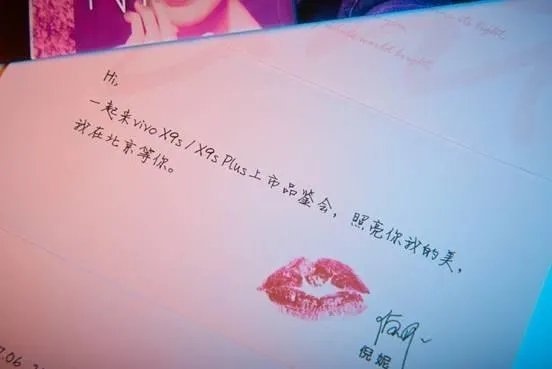 Hi,
一起来vivo X9s / X9s Plus上市品鉴会，照亮你我的美，
我在北京等你。
倪妮